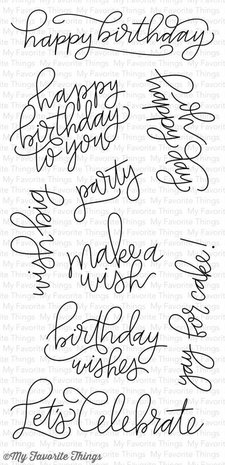 happy birthday
happy
birthday
to you
oh
happy day
party
wish big
make a
wish
yay for cake!
birthday
wishes
Let's Celebrate
©My Favorite Things